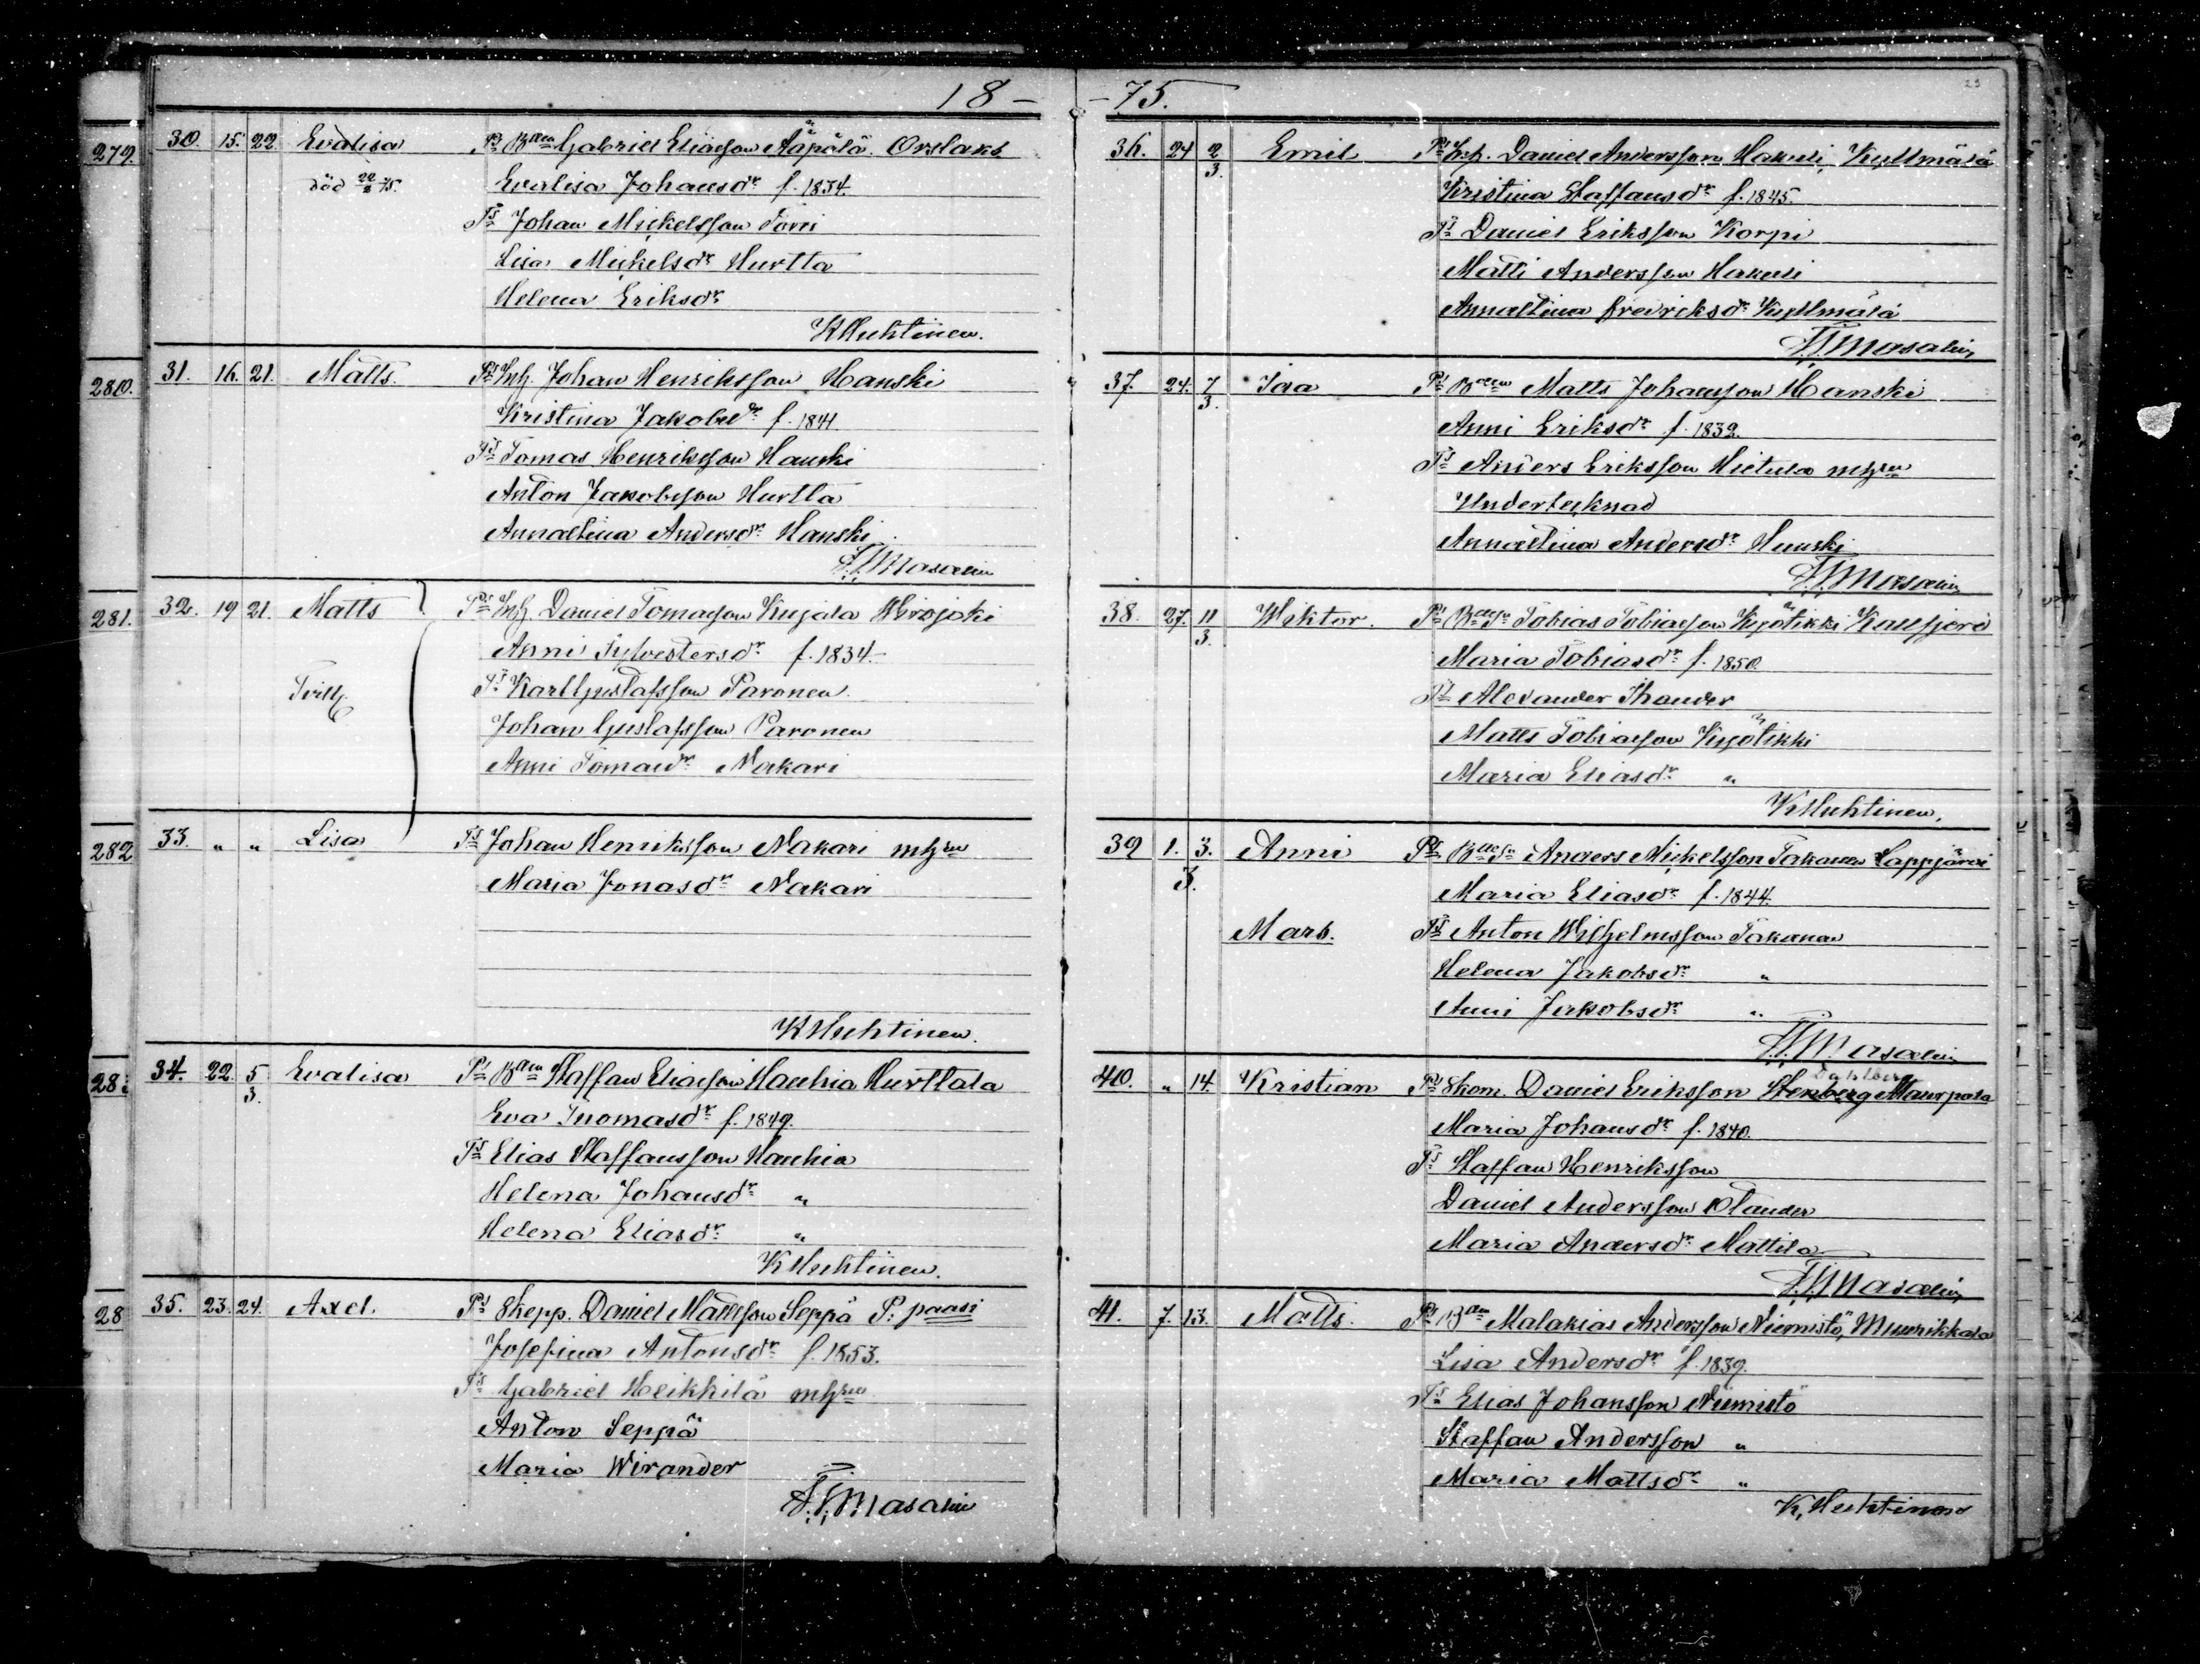 18-
279. 30. 15. 22. Evalisa Ps Bden Gabriel Eliasson Aäpälä. Orslaks
död 22/2 75. Evalisa Johansdr f. 1834.
Ts Johan Mickelsson Torri
Lisa Mickelsdr Hurtta
Helena Eriksdr
K Huhtinen.
280. 31. 16. 21. Matts. Ps Inh. Johan Henriksson Hanski
Kristina Jakobsdr f. 1841
Ts Tomas Henriksson Hanski
Anton Jakobsson Hurtta
Annastina Andersdr Hanski
F.F. Masalin
281. 32. 19 21. Matts Ps Inh. Daniel Tomasson Kujala Wirojoki
Anni Sylvestersdr f. 1834.
Tvill. Ts Karl Gustafsson Paronen.
Johan Gustafsson Paronen
Anni Tomasdr Nakari
282 33. " " Lisa Ts Johan Henriksson Nakari m hru
Maria Jonasdr Nakari
K Huhtinen.
28 34. 22. 5/3. Evalisa Ps Bden Staffan Eliasson Hauhia Hurttala
Eva Tuomasdr f. 1849.
Ts Elias Staffansson Hauhia
Helena Johansdr "
Helena Eliasdr "
K Huhtinen.
28 35. 23. 24. Axel. Ps Skepp. Daniel Mattsson Seppä P: paasi
Josefina Antonsdr f. 1853.
Ts Gabriel Heikkilä m hru
Anton Seppä
Maria Wirander
F.F. Masalin
-75.
23
36. 24 2/3. Emil Ps Inh. Daniel Andersson Hakuli, Kyllmälä
Kristina Staffansdr f. 1845.
Ts Daniel Eriksson Korpi
Matti Andersson Hakuli
Annastina Fredriksdr Kyllmälä
F.F. Masalin
37. 24. 7/3. Ida Ps Bden Matts Johansson Hanski
Anni Eriksdr f. 1832.
Ts Anders Eriksson Hietula m hru
Undertecknad
Annastina Andersdr Hanski
F.F. Masalin
38. 27. 11/3. Wiktor. Ps Tobias Tobiasson Kyötikki
Maria Tobiasdr f. 1850.
Ts Alexander Ihander
Matts Tobiasson Kyötikki
Maria Eliasdr "
K Huhtinen.
39 1. 3. Anni Ps Anders Mickelsson Takanen Lappjärvi
3. Maria Eliasdr f. 1844.
Mars. Ts Anton Wilhelmsson Takanen
Helena Jakobsdr "
Anni Jakobsdr "
F.F. Masalin
Dahlberg
40. " 14. Kristian Ps Skom. Daniel Eriksson Stenberg Maurpala
Maria Johansdr f. 1840.
Ts Staffan Henriksson
Daniel Andersson Olander
Maria Andersdr Mattila
F.F. Masalin
41. 7. 13. Matts. Ps Bden Malakias Andersson Niemistö, Muurikkala
Lisa Andersdr f. 1839.
Ts Elias Johansson Niemistö
Staffan Andersson "
Maria Mattsdr "
K. Huhtinen